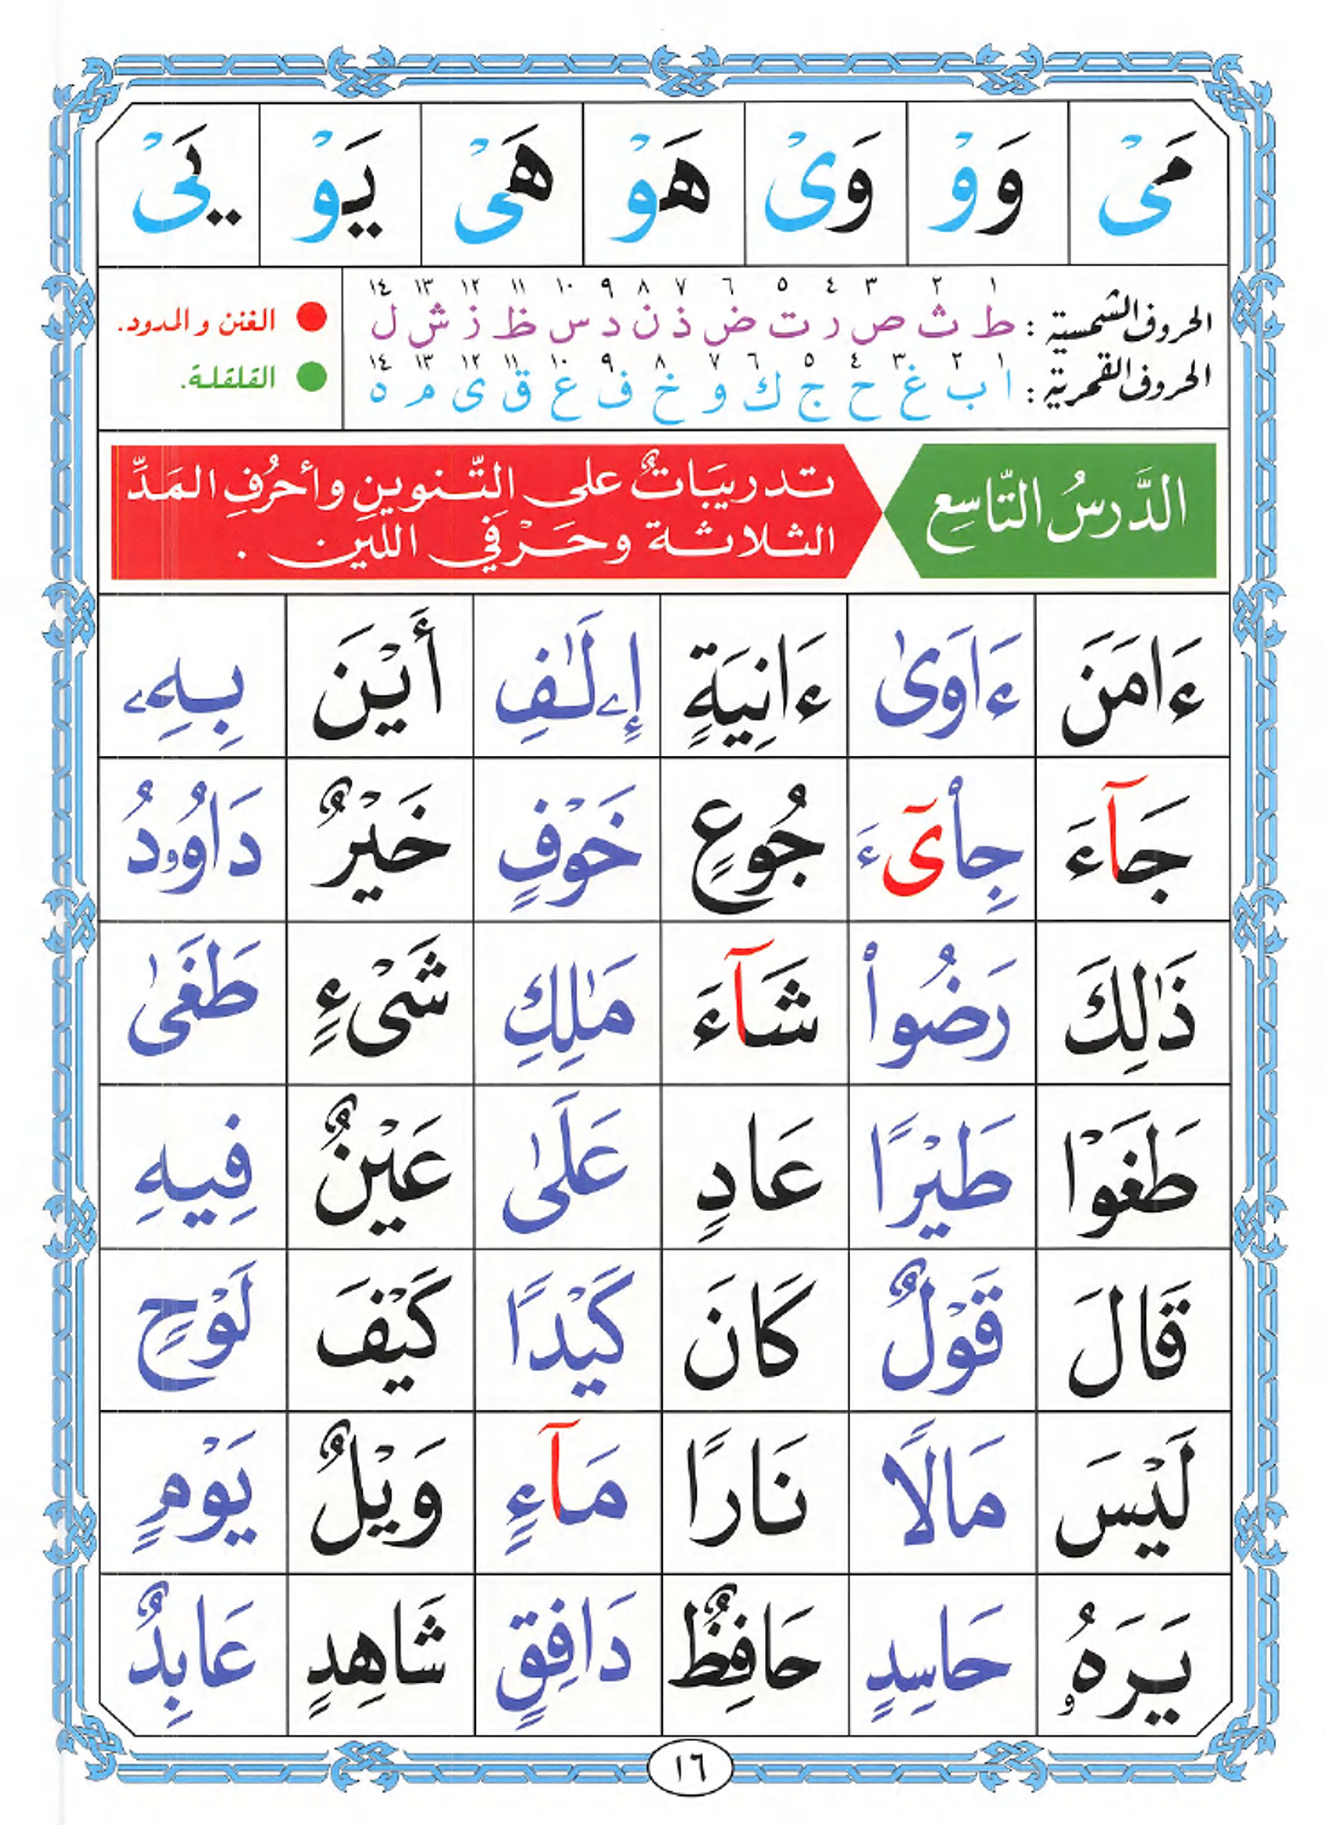 مَىْ وَوْ وَىْ هَوْ هَىْ يَوْ يَىْ
١ ٢ ٣ ٤ ٥ ٦ ٧ ٨ ٩ ١٠ ١١ ١٢ ١٣ ١٤
الحروف الشمسية : ط ث ص ر ت ض ذ ن د س ظ ز ش ل
الغنن و المدود.
١ ٢ ٣ ٤ ٥ ٦ ٧ ٨ ٩ ١٠ ١١ ١٢ ١٣ ١٤
الحروف القمرية : ا ب غ ح ج ك و خ ف ع ق ى م ه
القلقلة.
الدَّرسُ التّاسِع
تدريبَاتٌ على التّنوينِ وأحرُفِ المَدِّ
الثلاثة وحَرْفَي اللين .
ءَامَنَ ءَاوَىٰ ءَانِيَةٍ إِۦلَٰفِ أَيْنَ بِهِۦ
جَآءَ جِاْىٓءَ جُوعٍ خَوْفٍ خَيْرٌ دَاوُۥدُ
ذَٰلِكَ رَضُواْ شَآءَ مَٰلِكِ شَىْءٍ طَغَىٰ
طَغَوْا طَيْرًا عَادٍ عَلَىٰ عَيْنٌ فِيهِ
قَالَ قَوْلٌ كَانَ كَيْدًا كَيْفَ لَوْحٍ
لَيْسَ مَالًا نَارًا مَآءٍ وَيْلٌ يَوْمٍ
يَرَهُۥ حَاسِدٍ حَافِظٌ دَافِقٍ شَاهِدٍ عَابِدٌ
١٦